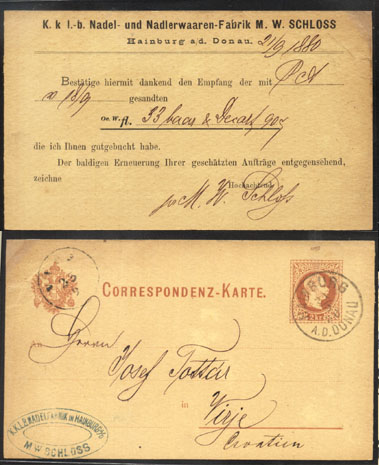 K. k l.-b. Nadel- und Nadlerwaaren-Fabrik M. W. SCHLOSS
Hainburg a/d. Donau. 21/9 1880
Bestätige hiermit dankend den Empfang der mit Pct
18/9 gesandten
Oe. W. fl. 33 baar &
die ich Ihnen gutgebucht habe.
Der baldigen Erneuerung Ihrer geschätzten Aufträge entgegensehend,
zeichne Hochachtend
M. W. Schloss
CORRESPONDENZ-KARTE.
BURG
A.D. DONAU
Herrn
Josef
in Virje
Croatien
M W SCHLOSS